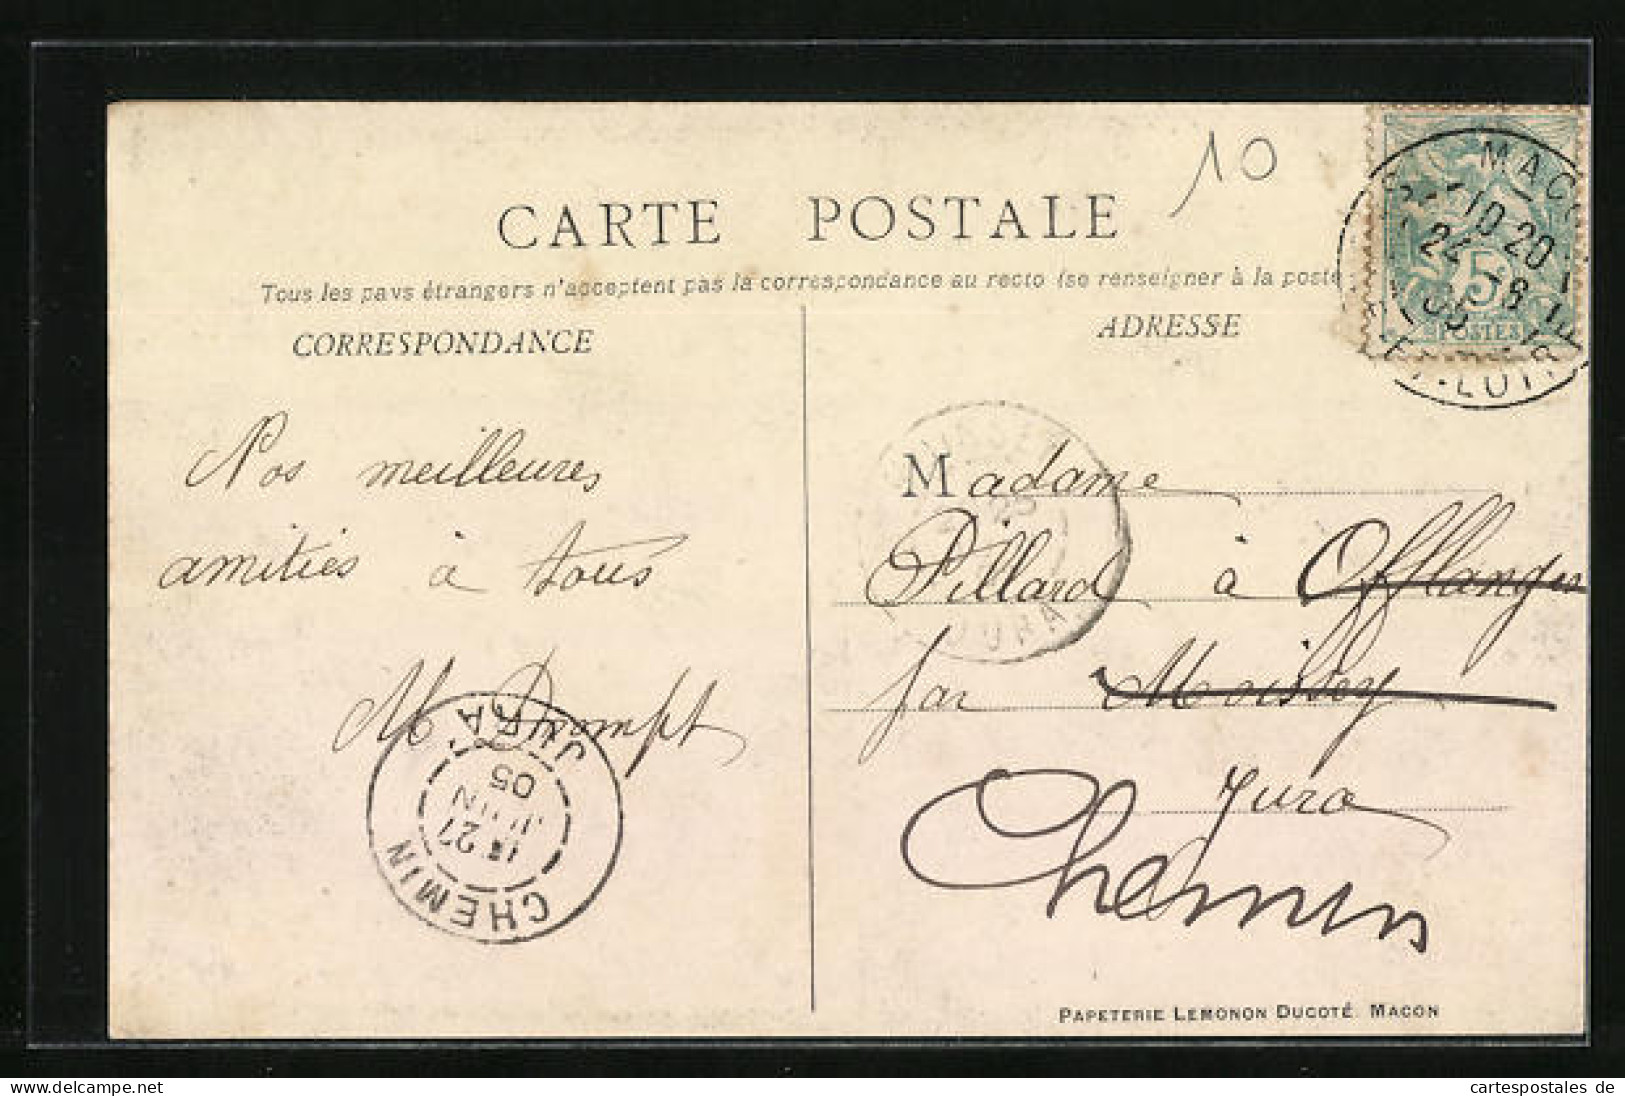 10
CARTE POSTALE
Tous les pays étrangers n'acceptent pas la correspondance au recto (se renseigner à la poste
CORRESPONDANCE
ADRESSE
MACO
10 20
24
05
ET-LOIRE
5
POSTES
Nos meilleures
amitiés à tous
M Dumpt
CHEMIN
27
JUIN
05
JURA
Madame
Pillard à Offlanges
par Moissey
Jura
Chemin
JURA
PAPETERIE LEMONON DUCOTÉ. MACON
www.cartespostales.de
cartespostales de